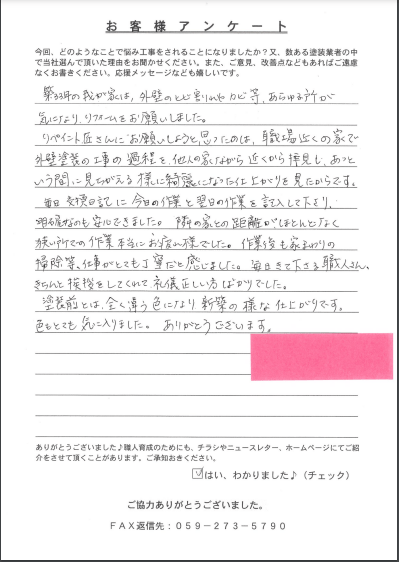 お客様アンケート
今回、どのようなことで悩み工事をされることになりましたか？又、数ある塗装業者の中
で当社選んで頂いた理由をお聞かせください。また、ご意見、改善点などもあればご遠慮
なくお書きください。応援メッセージなども嬉しいです。
築33年の我が家は、外壁のひび割れやカビ等、あらゆる所が
気になり、リフォームをお願いしました。
リペイント匠さんにお願いしようと思ったのは、職場近くの家で
外壁塗装の工事の過程を他人の家ながら近くから拝見し、あっと
いう間に見ちがえる様に綺麗になった仕上がりを見たからです。
毎日交換日記に今日の作業と翌日の作業を記入して下さり、
明確なのも安心できました。隣の家との距離がほとんどなく
狭い所での作業本当にお疲れ様でした。作業後も家まわりの
掃除等、仕事がとても丁寧だと感じました。毎日きて下さる職人さん、
きちんと挨拶をしてくれて、礼儀正しい方ばかりでした。
塗装前とは、全く違う色になり新築の様な仕上がりです。
色もとても気に入りました。ありがとうございます。
ありがとうございました♪職人育成のためにも、チラシやニュースレター、ホームページにてご紹
介をさせて頂くことがあります。ご承知おきください。
はい、わかりました♪（チェック）
ご協力ありがとうございました。
ＦＡＸ返信先：０５９－２７３－５７９０